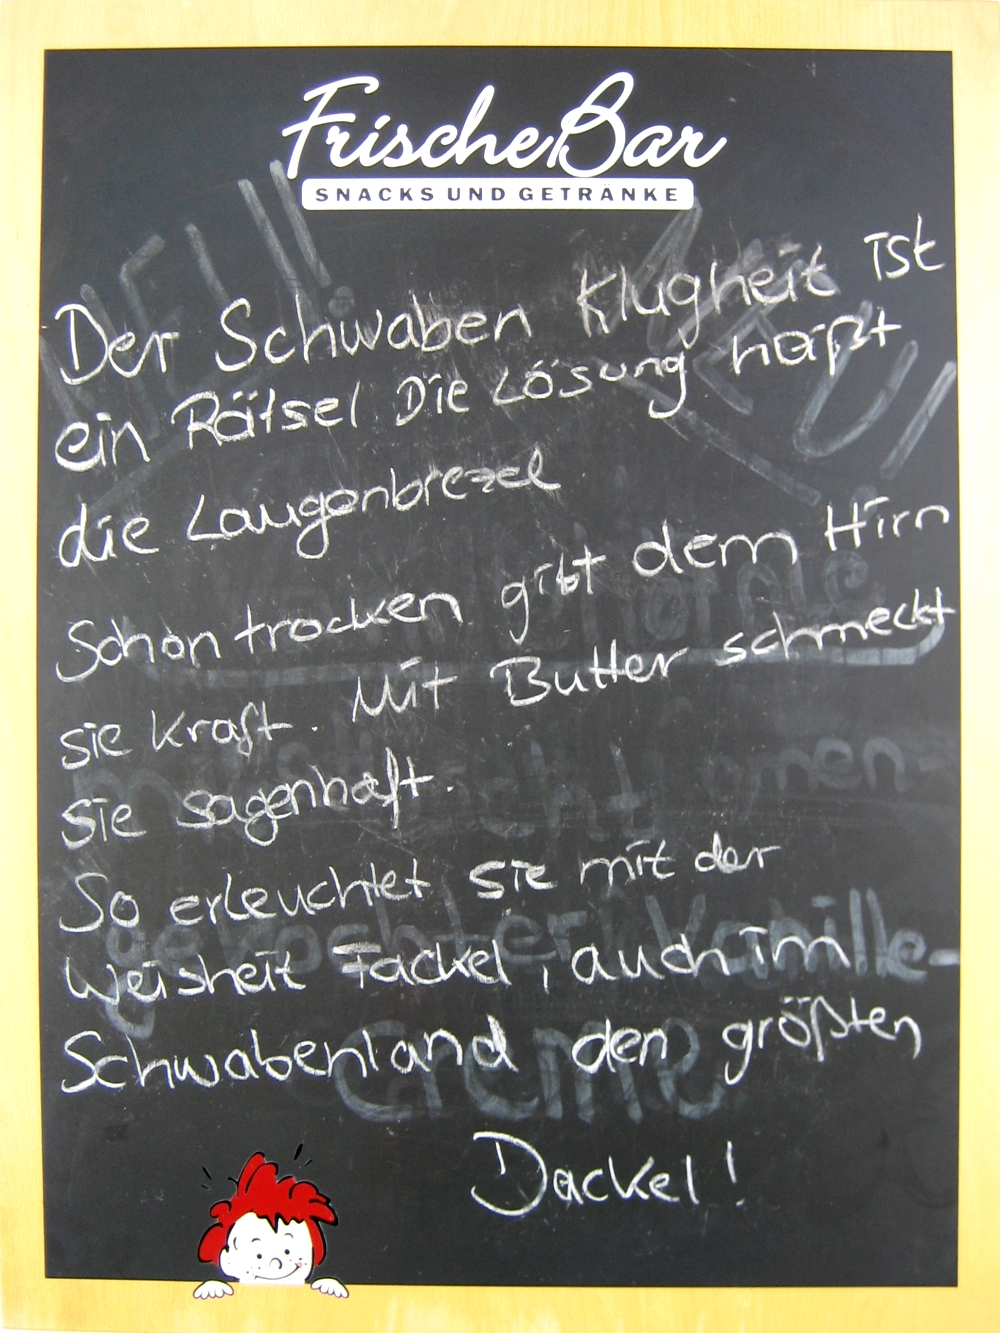 FrischeBar
SNACKS UND GETRÄNKE
Der Schwaben Klugheit ist
ein Rätsel Die Lösung haißt
die Laugenbrezel
Schon trocken gibt dem Hirn
sie Kraft. Mit Butter schmeckt
sie sagenhaft.
So erleuchtet sie mit der
Weisheit Fackel, auch im
Schwabenland den größten
Dackel!